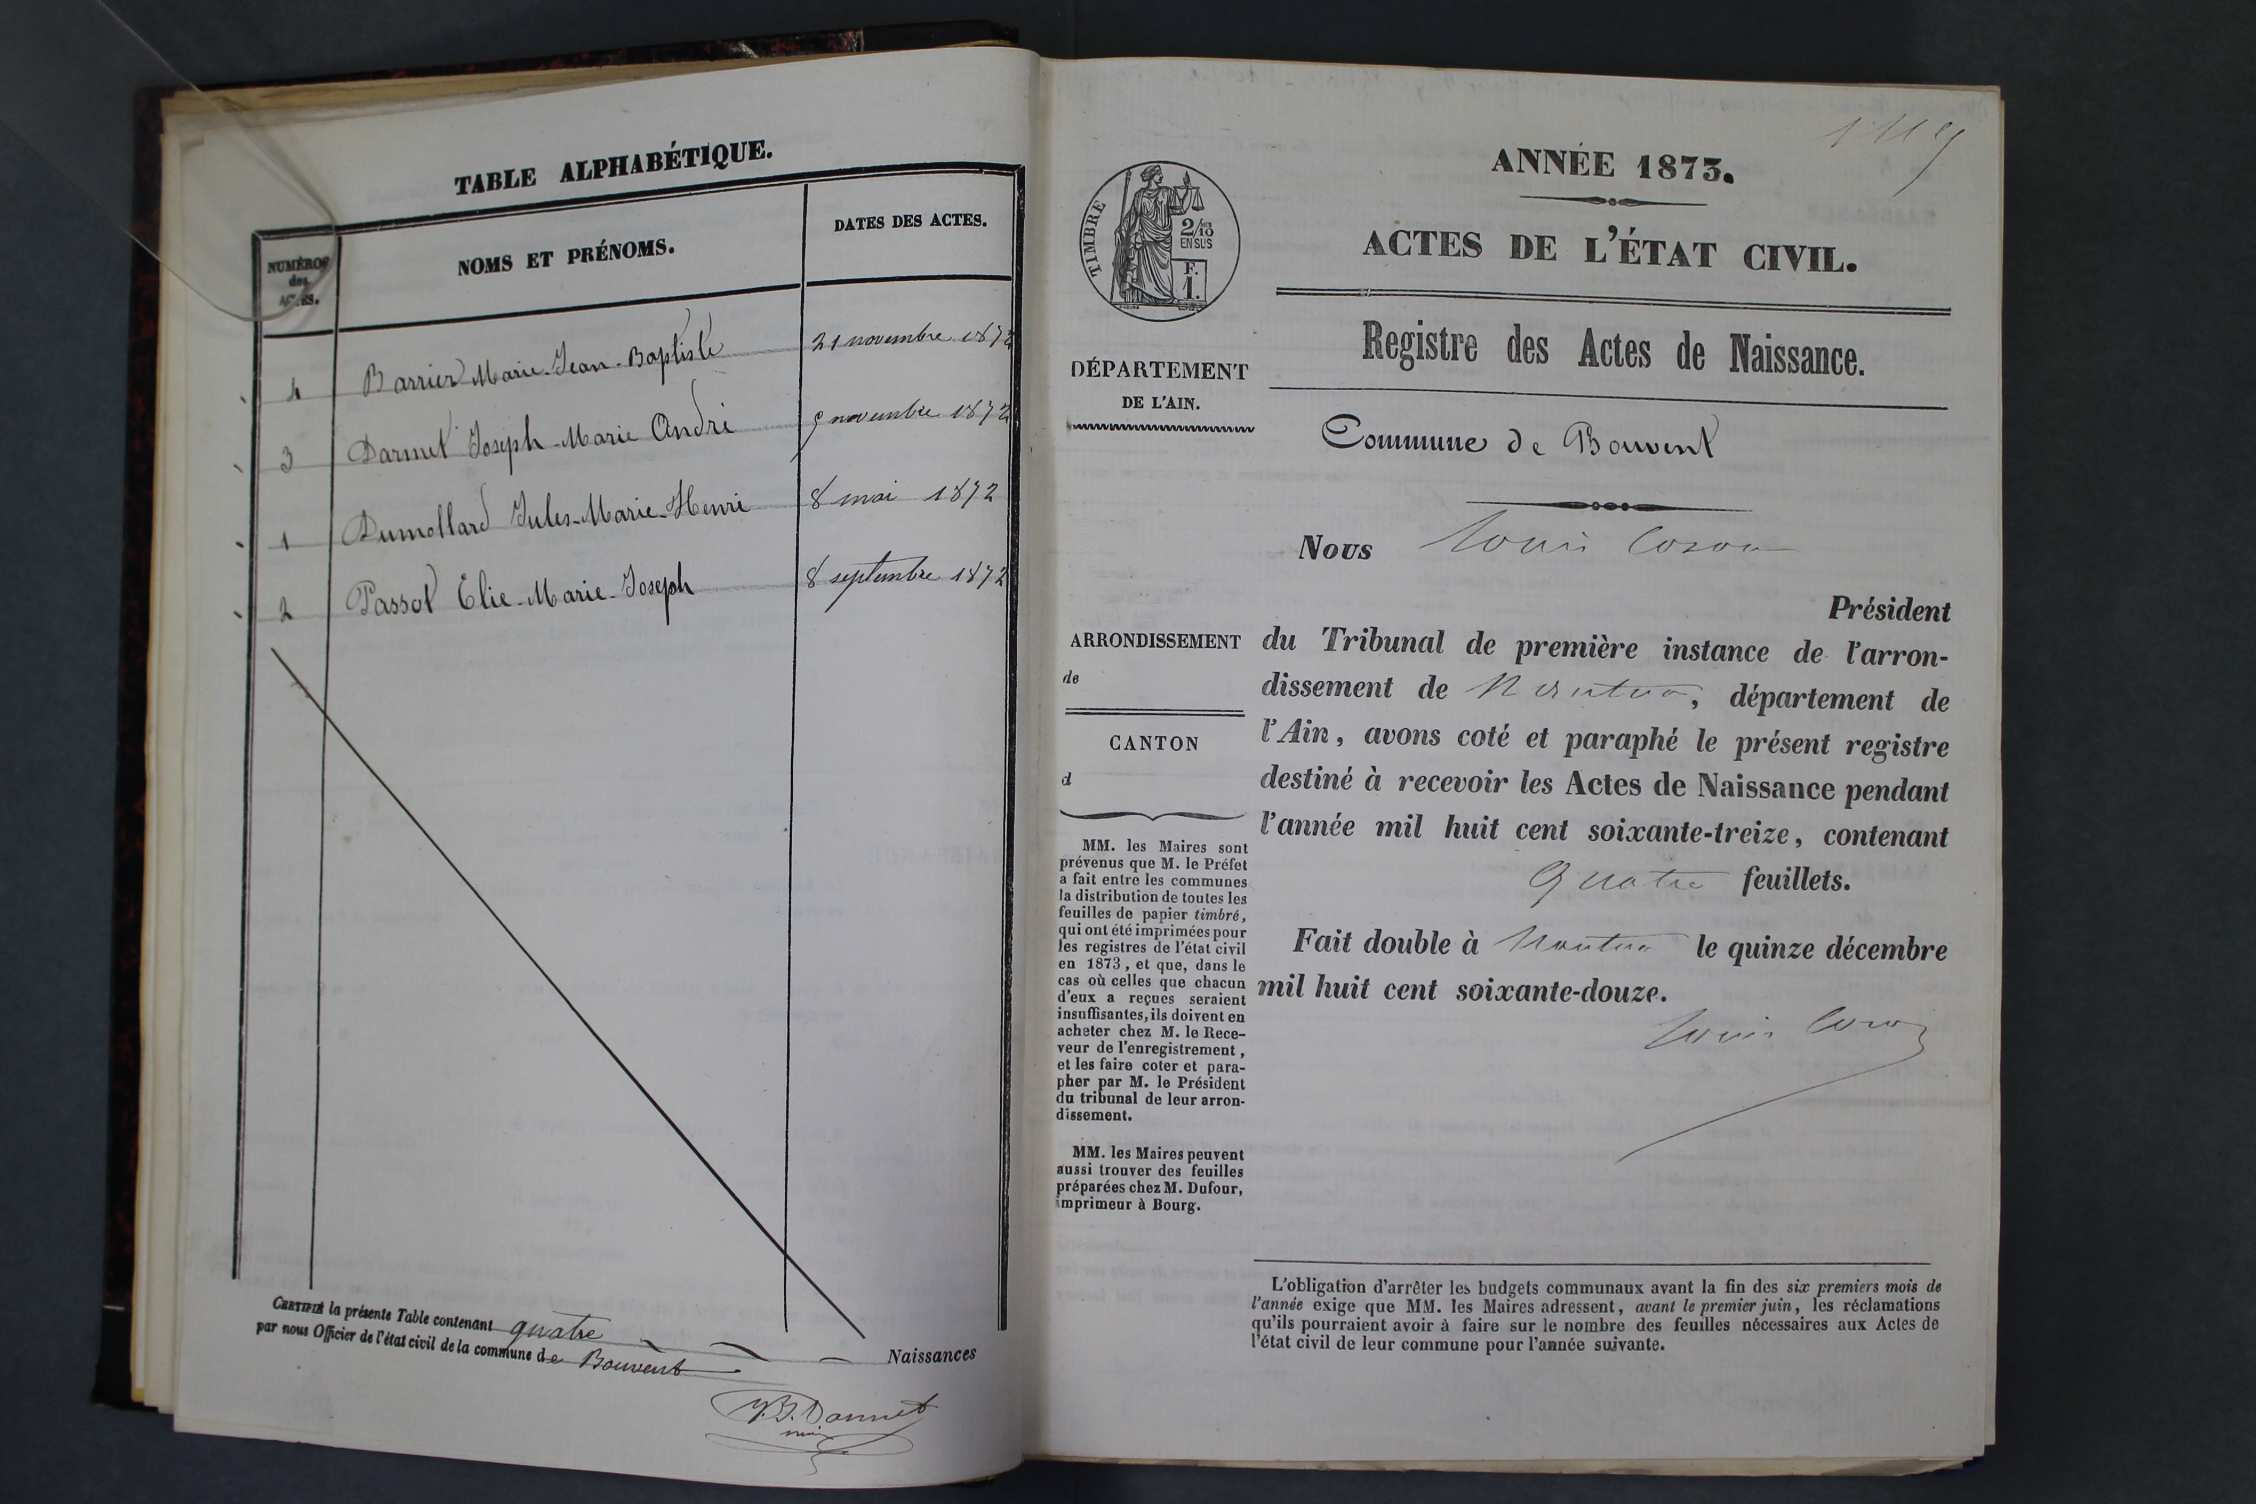 TABLE ALPHABÉTIQUE.
NUMÉROS des ACTES.
NOMS ET PRÉNOMS.
DATES DES ACTES.
4 Barrier Marie-Jean-Baptiste 21 novembre 1872
3 Darmet Joseph-Marie André 9 novembre 1872
1 Dumollard Jules-Marie-Henri 8 mai 1872
2 Passot Élie-Marie-Joseph 8 septembre 1872
CERTIFIÉ la présente Table contenant quatre Naissances
par nous Officier de l'état civil de la commune de Bouvent
Darmet
ANNÉE 1873.
ACTES DE L'ÉTAT CIVIL.
TIMBRE
2/10
EN SUS
F.
1.
DÉPARTEMENT
DE L'AIN.
ARRONDISSEMENT
de
CANTON
d
MM. les Maires sont
prévenus que M. le Préfet
a fait entre les communes
la distribution de toutes les
feuilles de papier timbré,
qui ont été imprimées pour
les registres de l'état civil
en 1873, et que, dans le
cas où celles que chacun
d'eux a reçues seraient
insuffisantes, ils doivent en
acheter chez M. le Rece-
veur de l'enregistrement,
et les faire coter et para-
pher par M. le Président
du tribunal de leur arron-
dissement.
MM. les Maires peuvent
aussi trouver des feuilles
préparées chez M. Dufour,
imprimeur à Bourg.
Registre des Actes de Naissance.
Commune de Bouvent
Nous Louis
Président
du Tribunal de première instance de l'arron-
dissement de Nantua, département de
l'Ain, avons coté et paraphé le présent registre
destiné à recevoir les Actes de Naissance pendant
l'année mil huit cent soixante-treize, contenant
quatre feuillets.
Fait double à Nantua le quinze décembre
mil huit cent soixante-douze.
Louis
L'obligation d'arrêter les budgets communaux avant la fin des six premiers mois de
l'année exige que MM. les Maires adressent, avant le premier juin, les réclamations
qu'ils pourraient avoir à faire sur le nombre des feuilles nécessaires aux Actes de
l'état civil de leur commune pour l'année suivante.